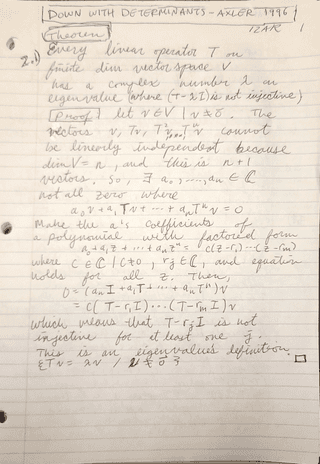 DOWN WITH DETERMINANTS - AXLER 1996
IZAR 1
Theorem
2.1) Every linear operator T on
finite dim vector space V
has a complex number λ an
eigenvalue (where (T-λI) is not injective)
Proof let v∈V | v≠0. The
vectors v, Tv, T²v, ..., Tⁿv cannot
be linearly independent because
dim V = n, and this is n+1
vectors. So, ∃ a₀, ..., aₙ ∈ ℂ
not all zero where
a₀v + a₁Tv + ... + aₙTⁿv = 0
Make the a's coefficients of
a polynomial with factored form
a₀ + a₁z + ... + aₙzⁿ = c(z-r₁)...(z-rₘ)
where c∈ℂ | c≠0, rⱼ∈ℂ, and equation
holds for all z. Then,
0 = (a₀I + a₁T + ... + aₙTⁿ)v
= c(T-r₁I)...(T-rₘI)v
which means that T-rⱼI is not
injective for at least one j.
This is an eigenvalue's definition.
{Tv = λv / v≠0}